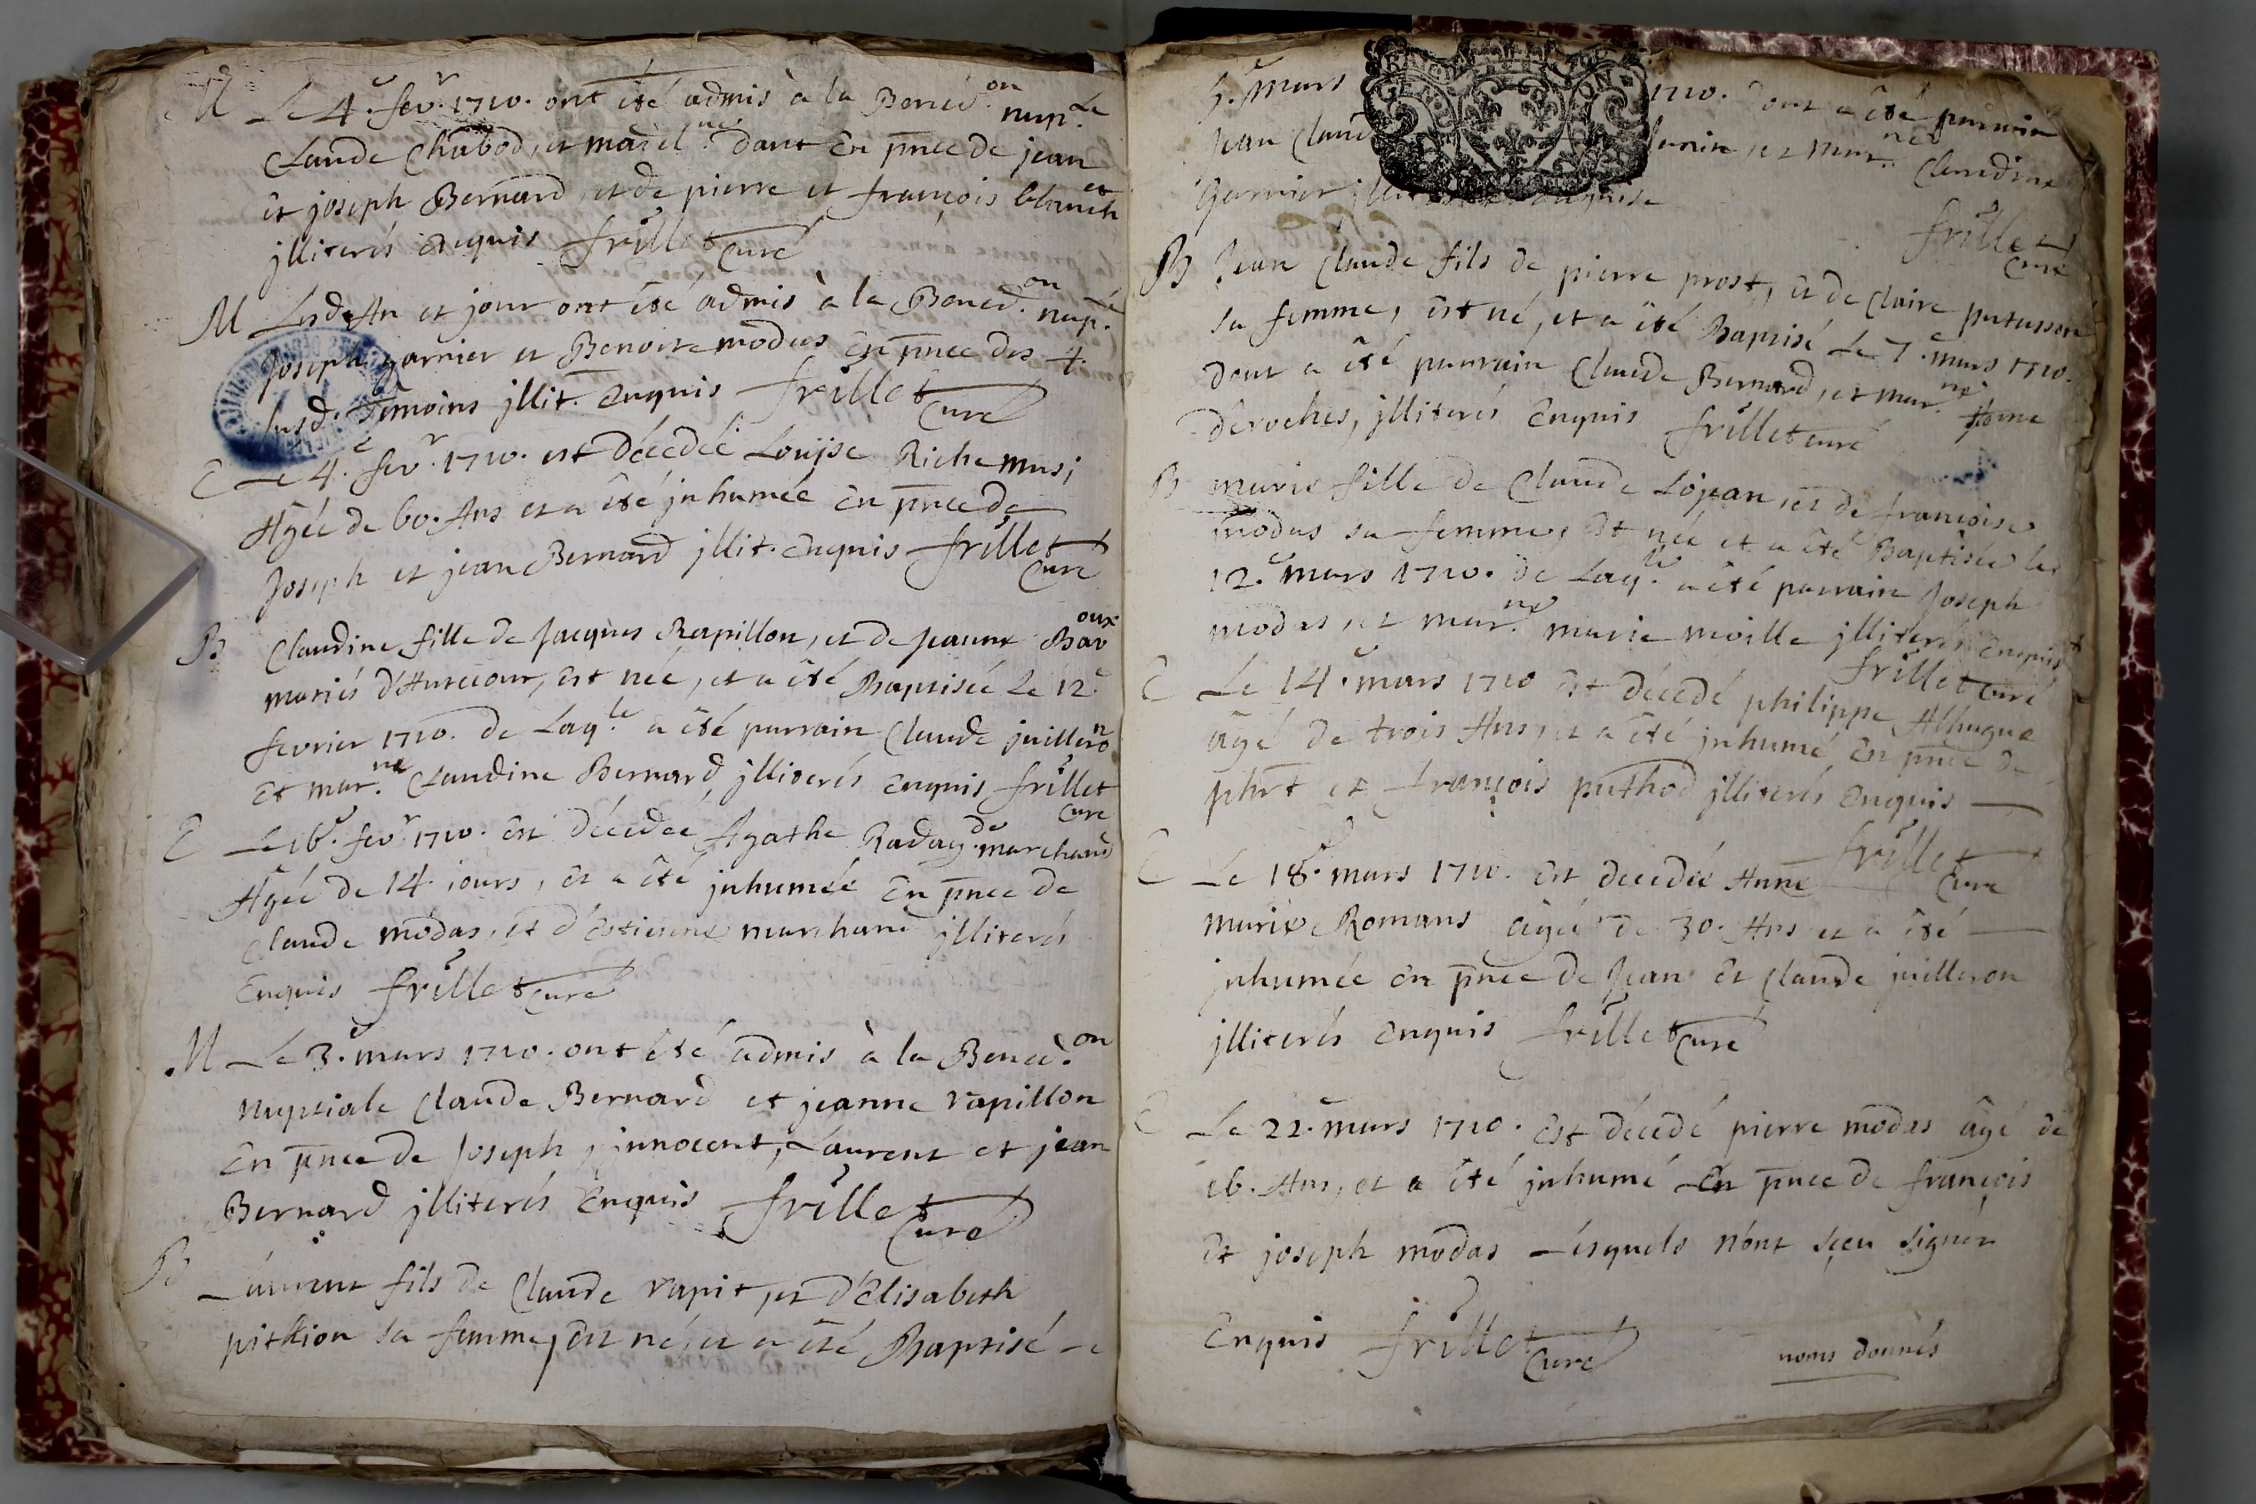 M Le 4.e fev.r 1710. ont été admis à la Bened.on nup.le
Claude Chabod, et madel.ne dant En pnce de jean
et joseph Bernard, et de pierre et françois blanch
jlliterés Enquis frillet Curé
M Lesd. An et jour ont été admis à la Bened.on nup.e
Joseph garnier et Benoite modas En pnce des 4.
susd. Temoins jllit. Enquis frillet Curé
E Le 4.e fev.r 1710. est décedée Louÿse Riche
Agée de 60. Ans et a été jnhumée En pnce de
Joseph et jean Bernard jllit. Enquis frillet Curé
B Claudine fille de Jacques Rapillon, et de Jeanne
mariés d'Aurecour, Est née, et a été Baptisée Le 12.e
fevrier 1710. de Laq.le a été parrain Claude juilleron
Et mar.ne Claudine Bernard jlliterés Enquis frillet Curé
E Le 16.e fev.r 1710. Est décedée Agathe marchand
Agée de 14. iours, Et a été jnhumée En pnce de
Claude modas, Et d'Estienne marchand jlliterés
Enquis frillet Curé
M Le 3.e mars 1710. ont été admis à la Bened.on
nuptiale Claude Bernard et jeanne rapillon
En pnce de Joseph, jnnocent, Laurent et jean
Bernard jlliterés Enquis frillet Curé
B Laurent fils de Claude rapit, et d'Elisabeth
pithion sa femme, Est né, et a été Baptisé Le
5.e mars 1710. dont a été parrain
Jean Claude et mar.ne Claudine
garnier
frillet Curé
B Jean Claude fils de pierre prost, Et de Claire putusson
sa femme, Est né, et a été Baptisé Le 7.e mars 1710.
dont a été parrain Claude Bernard, et mar.ne Anne
deroches, jlliterés Enquis frillet curé
B marie fille de Claude Lojean, et de françoise
modas sa femme, Est née et a été Baptisée le
12.e mars 1710. de Laq.le a été parrain Joseph
modas, et mar.ne marie moille jlliterés Enquis
frillet curé
E Le 14.e mars 1710 Est décedé philippe
âgé de trois Ans, et a été jnhumé En pnce de
phrt et françois puthod jlliterés Enquis
frillet Curé
E Le 18.e mars 1710. Est décedée Anne
marie Romans âgée de 30. Ans et a été
jnhumée En pnce de Jean Et Claude juilleron
jlliterés Enquis frillet Curé
E Le 22.e mars 1710. Est décedé pierre modas âgé de
16. Ans, et a été jnhumé En pnce de françois
Et joseph modas Lesquels n'ont sçeu signér
Enquis frillet Curé
noms donnés